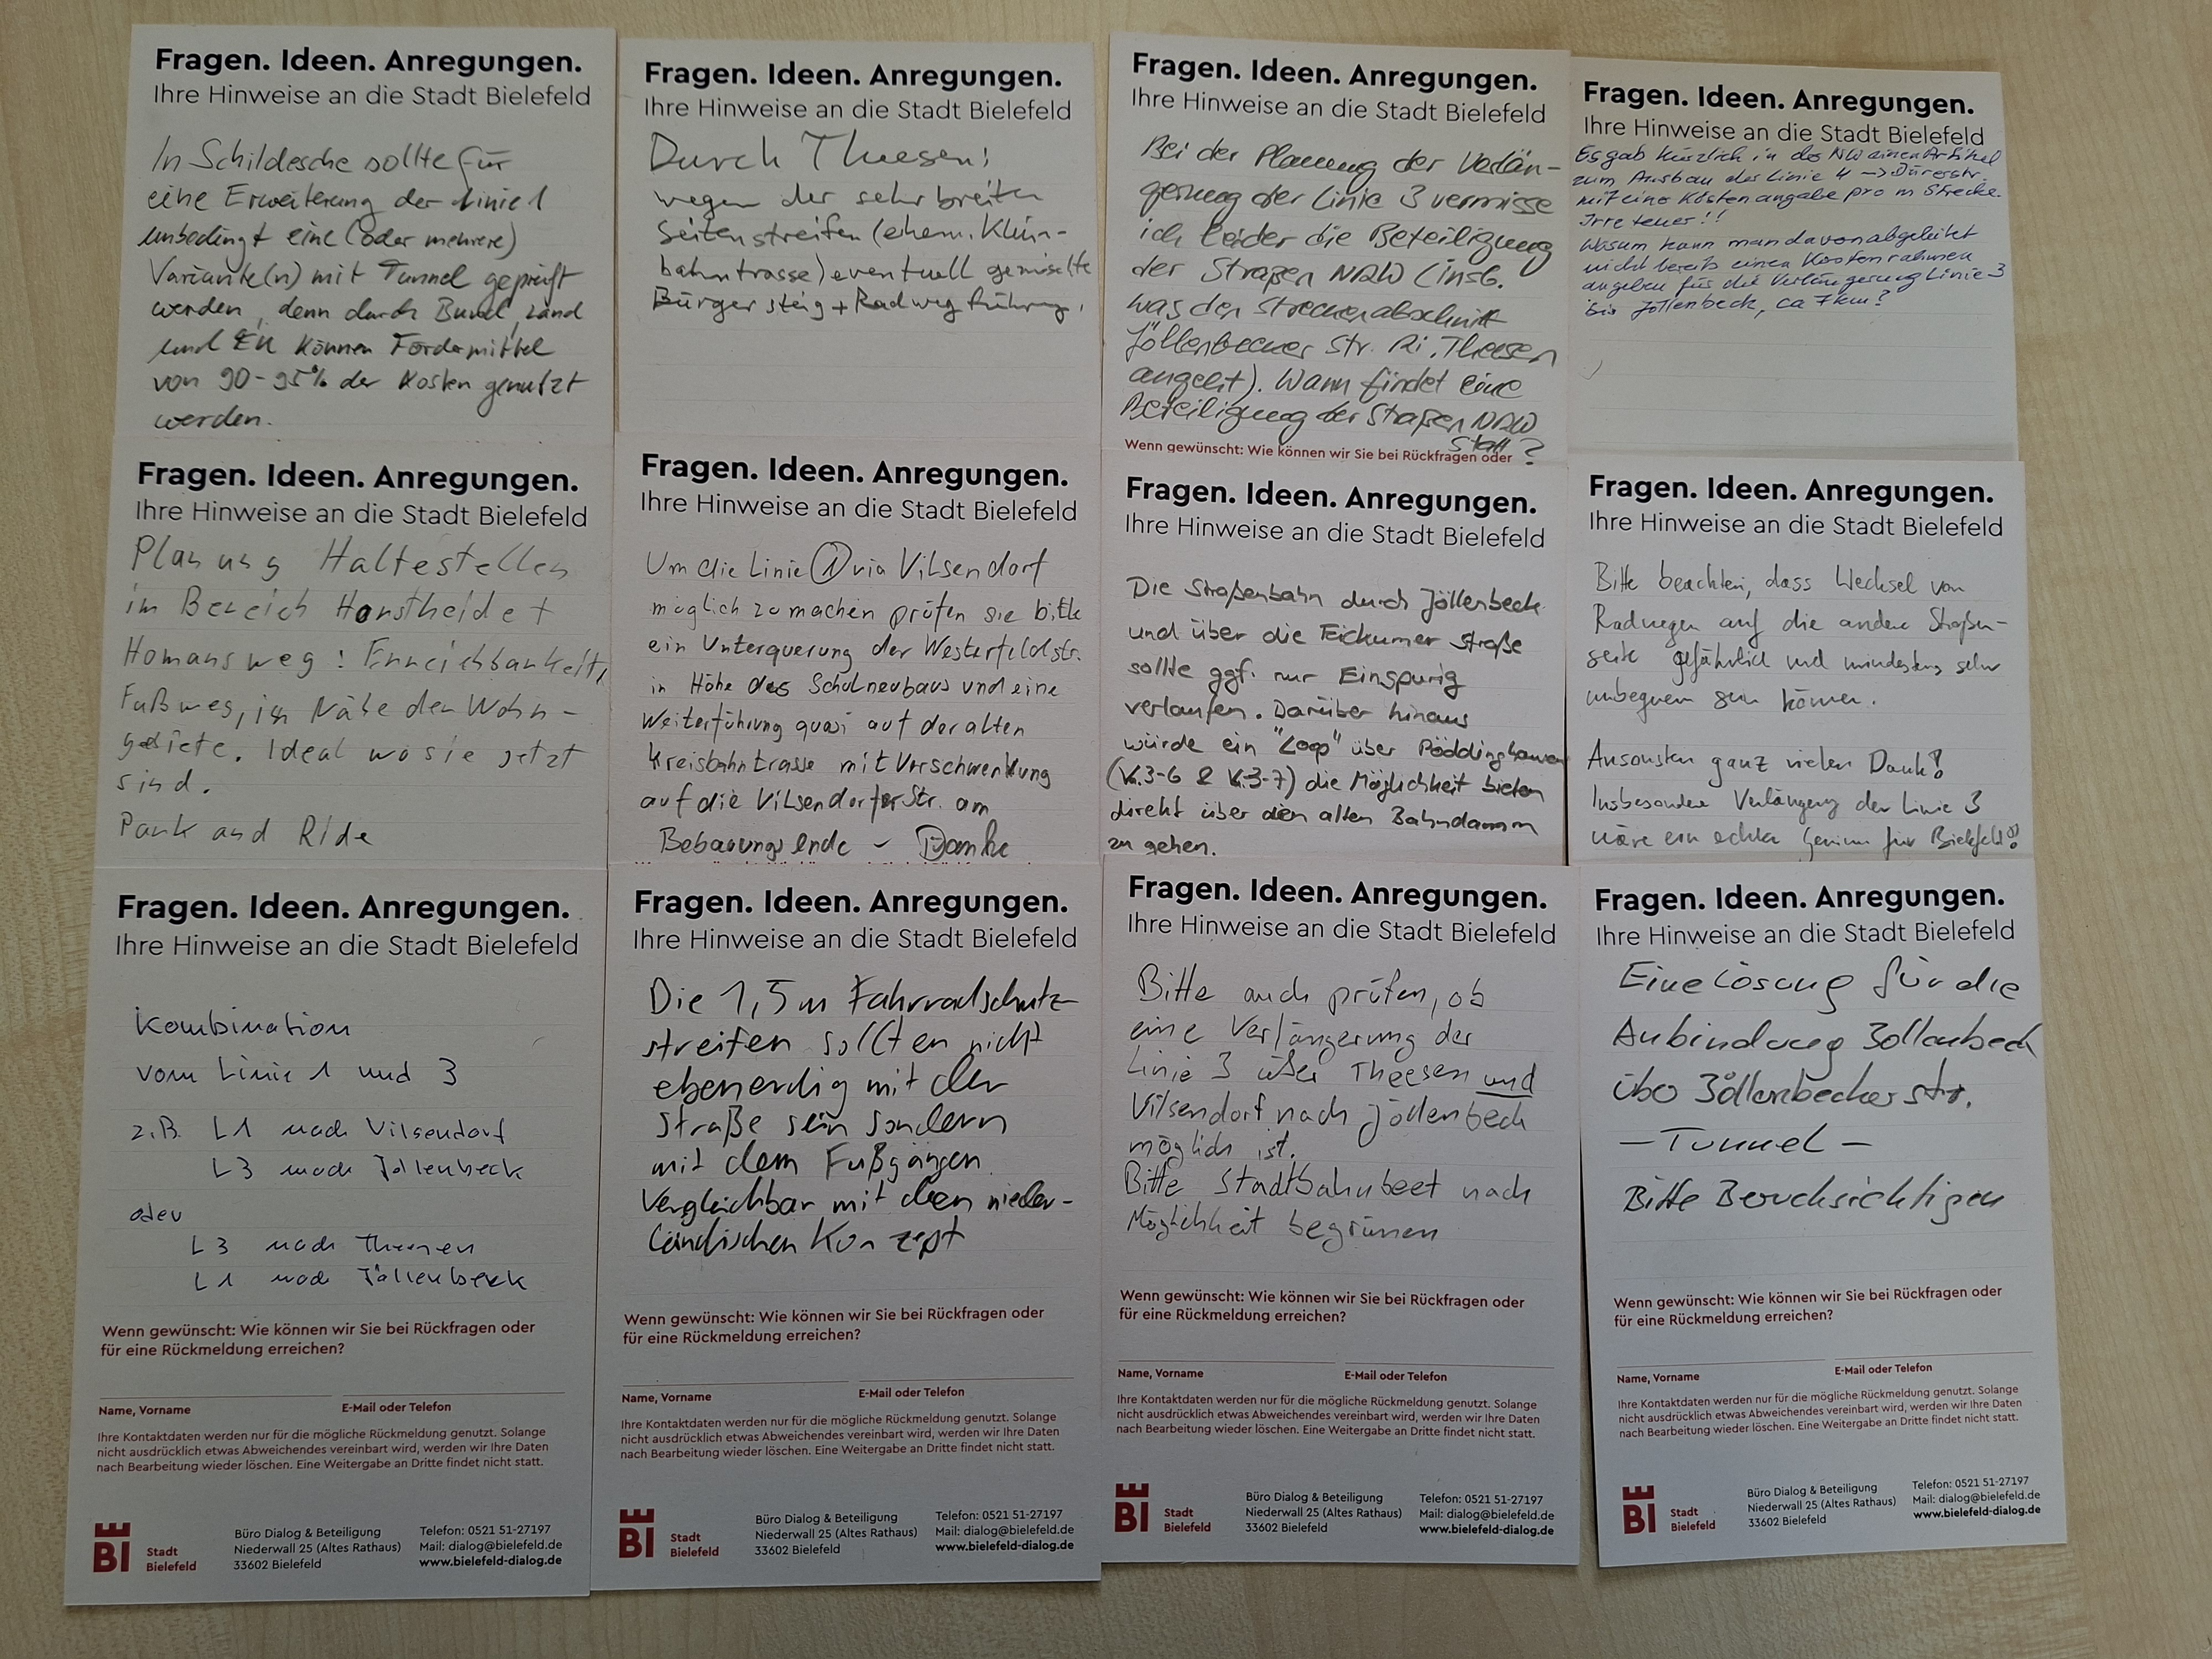 Fragen. Ideen. Anregungen.
Ihre Hinweise an die Stadt Bielefeld
In Schildesche sollte für
eine Erweiterung der Linie 1
unbedingt eine (oder mehrere)
Variante(n) mit Tunnel geprüft
werden, denn durch Bund, Land
und EU können Fördermittel
von 90-95% der Kosten genutzt
werden.
Fragen. Ideen. Anregungen.
Ihre Hinweise an die Stadt Bielefeld
Durch Theesen!
wegen der sehr breiten
Seitenstreifen (ehem. Klein-
bahntrasse) eventuell gemischte
Bürgersteig + Radwegführung.
Fragen. Ideen. Anregungen.
Ihre Hinweise an die Stadt Bielefeld
Bei der Planung der Verlän-
gerung der Linie 3 vermisse
ich leider die Beteiligung
der Straßen NRW (insb.
was den Streckenabschnitt
Jöllenbecker Str. Ri. Theesen
angeht). Wann findet eine
Beteiligung der Straßen NRW
statt?
Wenn gewünscht: Wie können wir Sie bei Rückfragen oder
Fragen. Ideen. Anregungen.
Ihre Hinweise an die Stadt Bielefeld
Es gab kürzlich in der NW einen Artikel
zum Ausbau der Linie 4 -> Dürerstr.
mit einer Kostenangabe pro m Strecke.
Irre teuer!!
Warum kann man davon abgeleitet
nicht bereits einen Kostenrahmen
angeben für die Verlängerung Linie 3
bis Jöllenbeck, ca 7km?
Fragen. Ideen. Anregungen.
Ihre Hinweise an die Stadt Bielefeld
Planung Haltestellen
im Bereich Horstheide +
Homansweg: Erreichbarkeit,
Fußweg, in Nähe der Wohn-
gebiete. Ideal wo sie jetzt
sind.
Park and Ride
Fragen. Ideen. Anregungen.
Ihre Hinweise an die Stadt Bielefeld
Um die Linie 1 via Vilsendorf
möglich zu machen prüfen sie bitte
ein Unterquerung der Westerfeldstr.
in Höhe des Schulneubaus und eine
Weiterführung quasi auf der alten
Kreisbahntrasse mit Verschwenkung
auf die Vilsendorfer Str. am
Bebauungsende - Danke
Fragen. Ideen. Anregungen.
Ihre Hinweise an die Stadt Bielefeld
Die Straßenbahn durch Jöllenbeck
und über die Eickumer Straße
sollte ggf. nur Einspurig
verlaufen. Darüber hinaus
würde ein "Loop" über Pödinghausen
(V.3-6 & V.3-7) die Möglichkeit bieten
direkt über den alten Bahndamm
zu gehen.
Fragen. Ideen. Anregungen.
Ihre Hinweise an die Stadt Bielefeld
Bitte beachten, dass Wechsel von
Radwegen auf die andere Straßen-
seite gefährlich und mindestens sehr
unbequem sein können.
Ansonsten ganz vielen Dank!
Insbesondere Verlängerung der Linie 3
wäre ein echter Gewinn für Bielefeld!
Fragen. Ideen. Anregungen.
Ihre Hinweise an die Stadt Bielefeld
Kombination
von Linie 1 und 3
z.B. L1 nach Vilsendorf
L3 nach Jöllenbeck
oder
L3 nach Theesen
L1 nach Jöllenbeck
Wenn gewünscht: Wie können wir Sie bei Rückfragen oder
für eine Rückmeldung erreichen?
Name, Vorname
E-Mail oder Telefon
Ihre Kontaktdaten werden nur für die mögliche Rückmeldung genutzt. Solange
nicht ausdrücklich etwas Abweichendes vereinbart wird, werden wir Ihre Daten
nach Bearbeitung wieder löschen. Eine Weitergabe an Dritte findet nicht statt.
BI Stadt Bielefeld
Büro Dialog & Beteiligung
Niederwall 25 (Altes Rathaus)
33602 Bielefeld
Telefon: 0521 51-27197
Mail: dialog@bielefeld.de
www.bielefeld-dialog.de
Fragen. Ideen. Anregungen.
Ihre Hinweise an die Stadt Bielefeld
Die 1,5m Fahrradschutz-
streifen sollten nicht
ebenerdig mit der
Straße sein sondern
mit dem Fußgängen.
Vergleichbar mit den nieder-
ländischen Konzept
Wenn gewünscht: Wie können wir Sie bei Rückfragen oder
für eine Rückmeldung erreichen?
Name, Vorname
E-Mail oder Telefon
Ihre Kontaktdaten werden nur für die mögliche Rückmeldung genutzt. Solange
nicht ausdrücklich etwas Abweichendes vereinbart wird, werden wir Ihre Daten
nach Bearbeitung wieder löschen. Eine Weitergabe an Dritte findet nicht statt.
BI Stadt Bielefeld
Büro Dialog & Beteiligung
Niederwall 25 (Altes Rathaus)
33602 Bielefeld
Telefon: 0521 51-27197
Mail: dialog@bielefeld.de
www.bielefeld-dialog.de
Fragen. Ideen. Anregungen.
Ihre Hinweise an die Stadt Bielefeld
Bitte auch prüfen, ob
eine Verlängerung der
Linie 3 über Theesen und
Vilsendorf nach Jöllenbeck
möglich ist.
Bitte Stadtbahnbeet nach
Möglichkeit begrünen
Wenn gewünscht: Wie können wir Sie bei Rückfragen oder
für eine Rückmeldung erreichen?
Name, Vorname
E-Mail oder Telefon
Ihre Kontaktdaten werden nur für die mögliche Rückmeldung genutzt. Solange
nicht ausdrücklich etwas Abweichendes vereinbart wird, werden wir Ihre Daten
nach Bearbeitung wieder löschen. Eine Weitergabe an Dritte findet nicht statt.
BI Stadt Bielefeld
Büro Dialog & Beteiligung
Niederwall 25 (Altes Rathaus)
33602 Bielefeld
Telefon: 0521 51-27197
Mail: dialog@bielefeld.de
www.bielefeld-dialog.de
Fragen. Ideen. Anregungen.
Ihre Hinweise an die Stadt Bielefeld
Eine Lösung für die
Anbindung Jöllenbeck
über Jöllenbecker str.
- Tunnel -
Bitte Berucksichtigen
Wenn gewünscht: Wie können wir Sie bei Rückfragen oder
für eine Rückmeldung erreichen?
Name, Vorname
E-Mail oder Telefon
Ihre Kontaktdaten werden nur für die mögliche Rückmeldung genutzt. Solange
nicht ausdrücklich etwas Abweichendes vereinbart wird, werden wir Ihre Daten
nach Bearbeitung wieder löschen. Eine Weitergabe an Dritte findet nicht statt.
BI Stadt Bielefeld
Büro Dialog & Beteiligung
Niederwall 25 (Altes Rathaus)
33602 Bielefeld
Telefon: 0521 51-27197
Mail: dialog@bielefeld.de
www.bielefeld-dialog.de